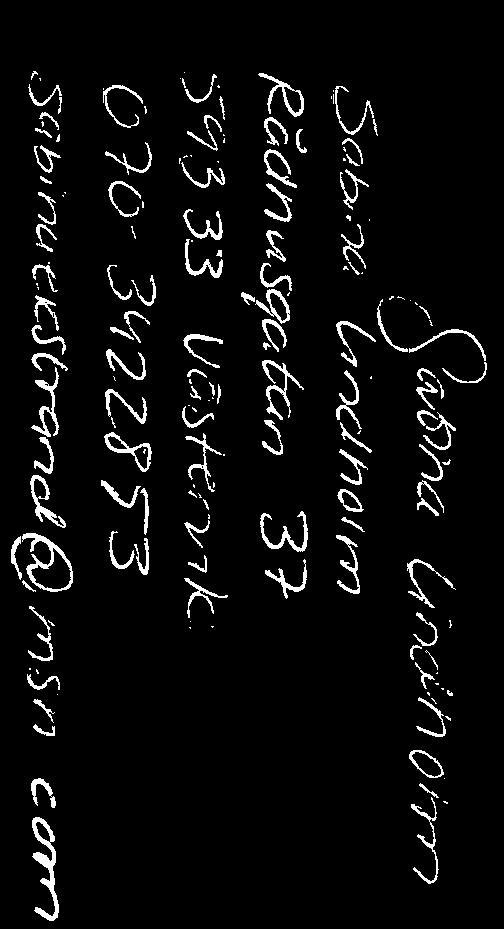 Sabina Lindholm
Sabina Lindholm
Rådhusgatan 37
593 33 Västervik
070-3422853
sabinaekstrand@msn com